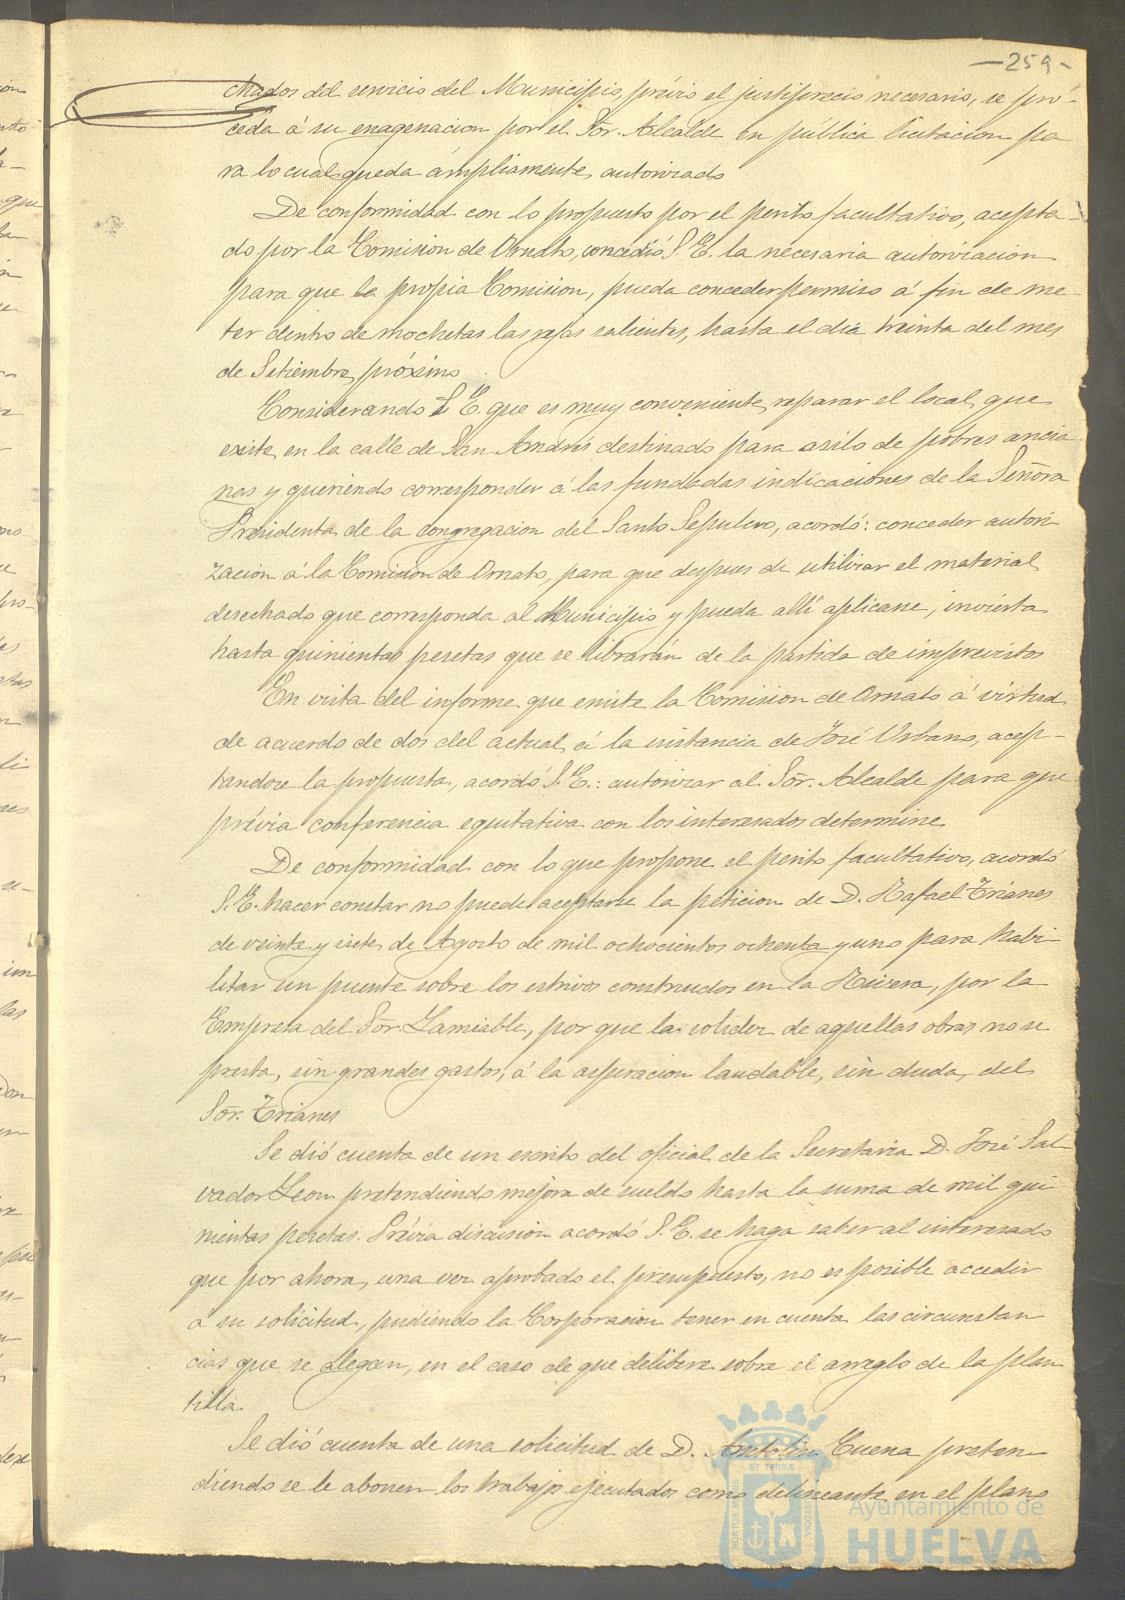 -259-
chados del servicio del Municipio, prévio el justiprecio necesario, se pro-
ceda á su enagenacion por el Sor. Alcalde en pública licitacion pa
ra lo cual queda ámpliamente autorizado
De conformidad con lo propuesto por el perito facultativo, acepta-
do por la Comision de Ornato, concedió S. E. la necesaria autorizacion
para que la propia Comision, pueda conceder permiso á fin de me-
ter dentro de mochetas las rejas salientes, hasta el dia treinta del mes
de Setiembre próximo
Considerando S. E. que es muy conveniente reparar el local que
existe en la calle de San Andrés destinado para asilo de pobres ancia
nas y queriendo corresponder á las fundadas indicaciones de la Señora
Presidenta de la Congregacion del Santo Sepulcro, acordó: conceder autori
zacion á la Comision de Ornato, para que despues de utilizar el material
desechado que corresponda al Municipio y pueda alli aplicarse, invierta
hasta quinientas pesetas que se librarán de la partida de imprevistos
En vista del informe que emite la Comision de Ornato á virtud
de acuerdo de dos del actual, á la instancia de José Urbano, acep-
tandose la propuesta, acordó S. E.: autorizar al Sor. Alcalde para que
prévia conferencia equitativa con los interesados determine
De conformidad con lo que propone el perito facultativo, acordó
S. E. hacer constar no puede aceptarse la peticion de D. Rafael Trianes
de veinte y siete de Agosto de mil ochocientos ochenta y uno para habi-
litar un puente sobre los estrivos construidos en la Rivera, por la
Empresa del Sor. Lamiable, por que la solidez de aquellas obras no se
presta, sin grandes gastos, á la aspiracion laudable, sin duda, del
Sor. Trianes
Se dió cuenta de un escrito del oficial de la Secretaria D. José Sal-
vador Leon pretendiendo mejora de sueldo hasta la suma de mil qui
nientas pesetas. Prévia discusion acordó S. E. se haga saber al interesado
que por ahora, una vez aprobado el presupuesto, no es posible acceder
á su solicitud, pudiendo la Corporacion tener en cuenta las circunstan
cias que se alegan, en el caso de que delibere sobre el arreglo de la plan
tilla.
Se dió cuenta de una solicitud de D. Antolin Cuena preten-
diendo se le abonen los trabajos ejecutados como delineante en el plano
Ayuntamiento de
HUELVA